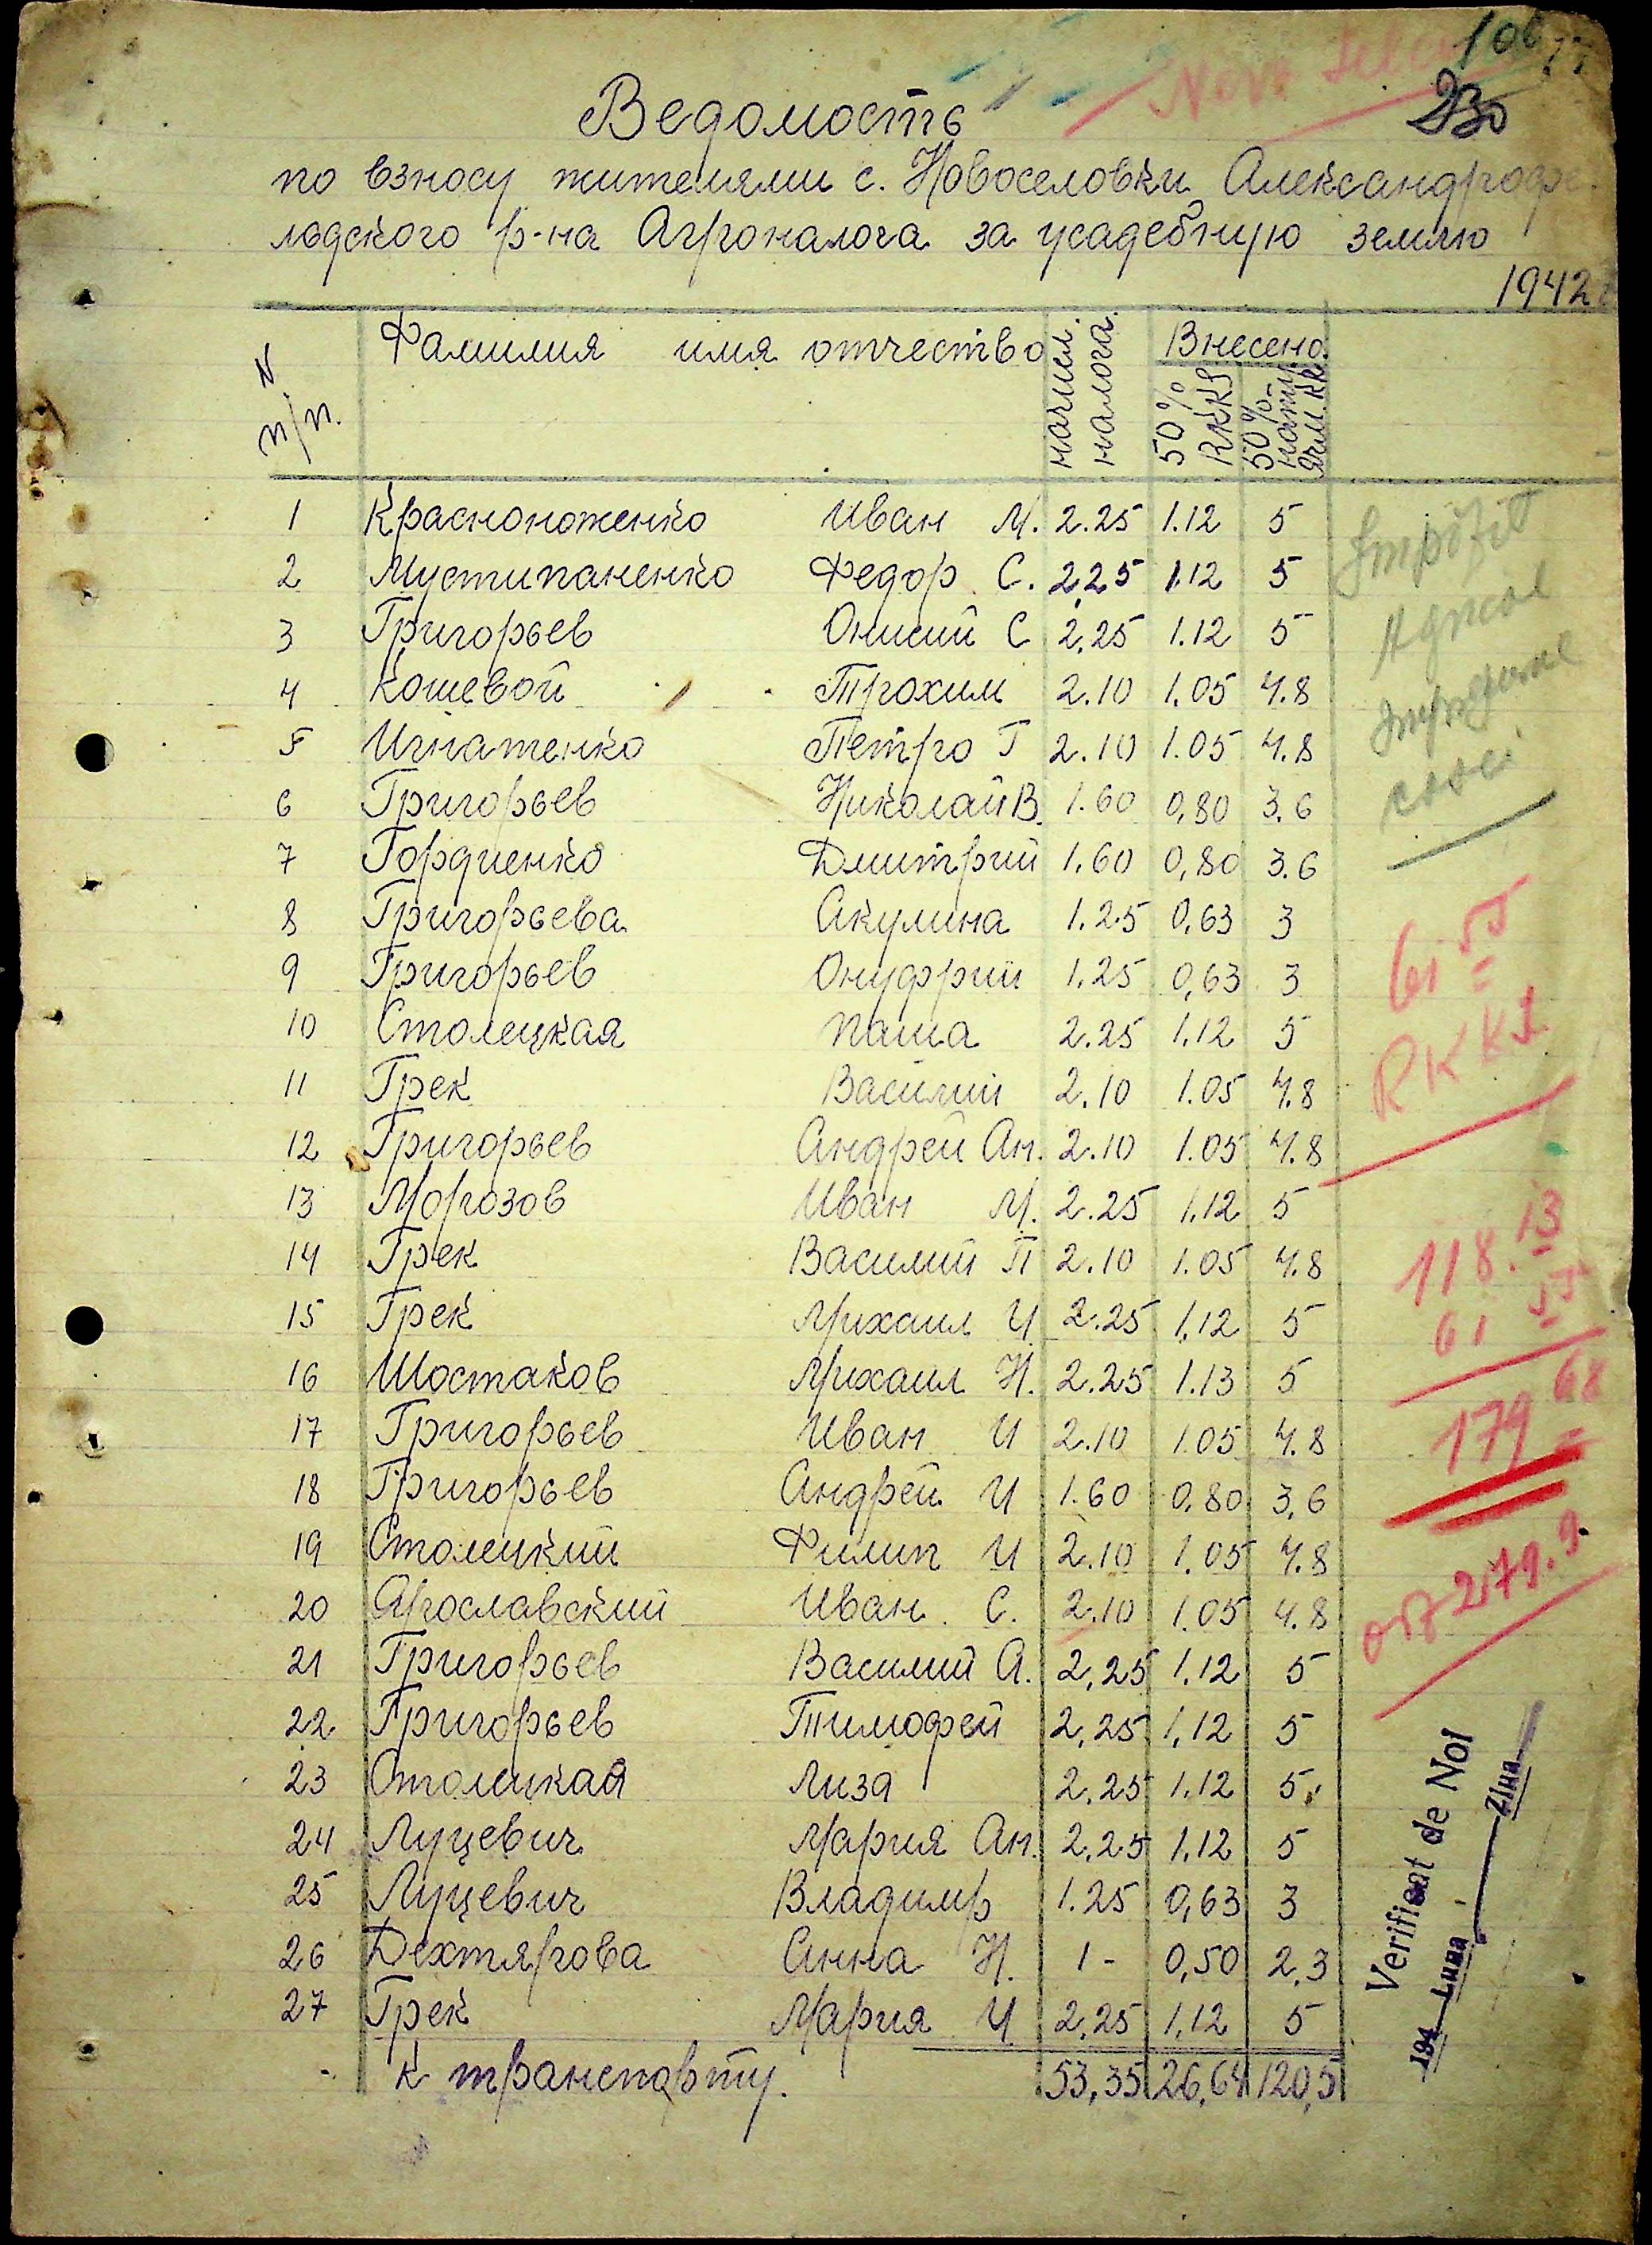 106
Novo
230
Ведомость
по взносу жителями с. Новоселовки Александрофе
льдского р-на Агроналога за усадебную землю
1942
N п/п. Фамилия имя отчество начисл. налога. Внесено
50% RKKS 50% натур. Ячм. кк.
1 Красноноженко Иван М. 2.25 1.12 5
2 Мустипаненко Федор С. 2.25 1.12 5
3 Григорьев Онисий С 2,25 1.12 5
4 Кошевой Трохим 2.10 1.05 4.8
5 Игнатенко Петро Г 2.10 1.05 4.8
6 Григорьев Николай В. 1.60 0,80 3.6
7 Гордиенко Дмитрий 1.60 0,80 3.6
8 Григорьева Акулина 1.25 0,63 3
9 Григорьев Онуфрий 1.25 0,63 3
10 Столецкая Паша 2.25 1.12 5
11 Грек Василий 2.10 1.05 4.8
12 Григорьев Андрей Ан. 2.10 1.05 4.8
13 Морозов Иван М. 2.25 1.12 5
14 Грек Василий П 2.10 1.05 4.8
15 Грек Михаил И 2.25 1.12 5
16 Шостаков Михаил Н. 2.25 1.13 5
17 Григорьев Иван И 2.10 1.05 4.8
18 Григорьев Андрей И 1.60 0,80 3,6
19 Столецкий Филип И 2.10 1.05 4.8
20 Ярославский Иван С. 2.10 1.05 4.8
21 Григорьев Василий А. 2,25 1.12 5
22 Григорьев Тимофей 2,25 1,12 5
23 Столицкая Лиза 2.25 1.12 5
24 Луцевич Мария Ан. 2.25 1,12 5
25 Луцевич Владимир 1.25 0,63 3
26 Дехтярова Анна Н. 1 - 0,50 2,3
27 Грек Мария И 2,25 1,12 5
к транспорту. 53,35 26,64 120,5
Impozit
Agricol
61 55
RKKS
118.13
61 55
179 68
Verificat de Noi
194 Luna Ziua